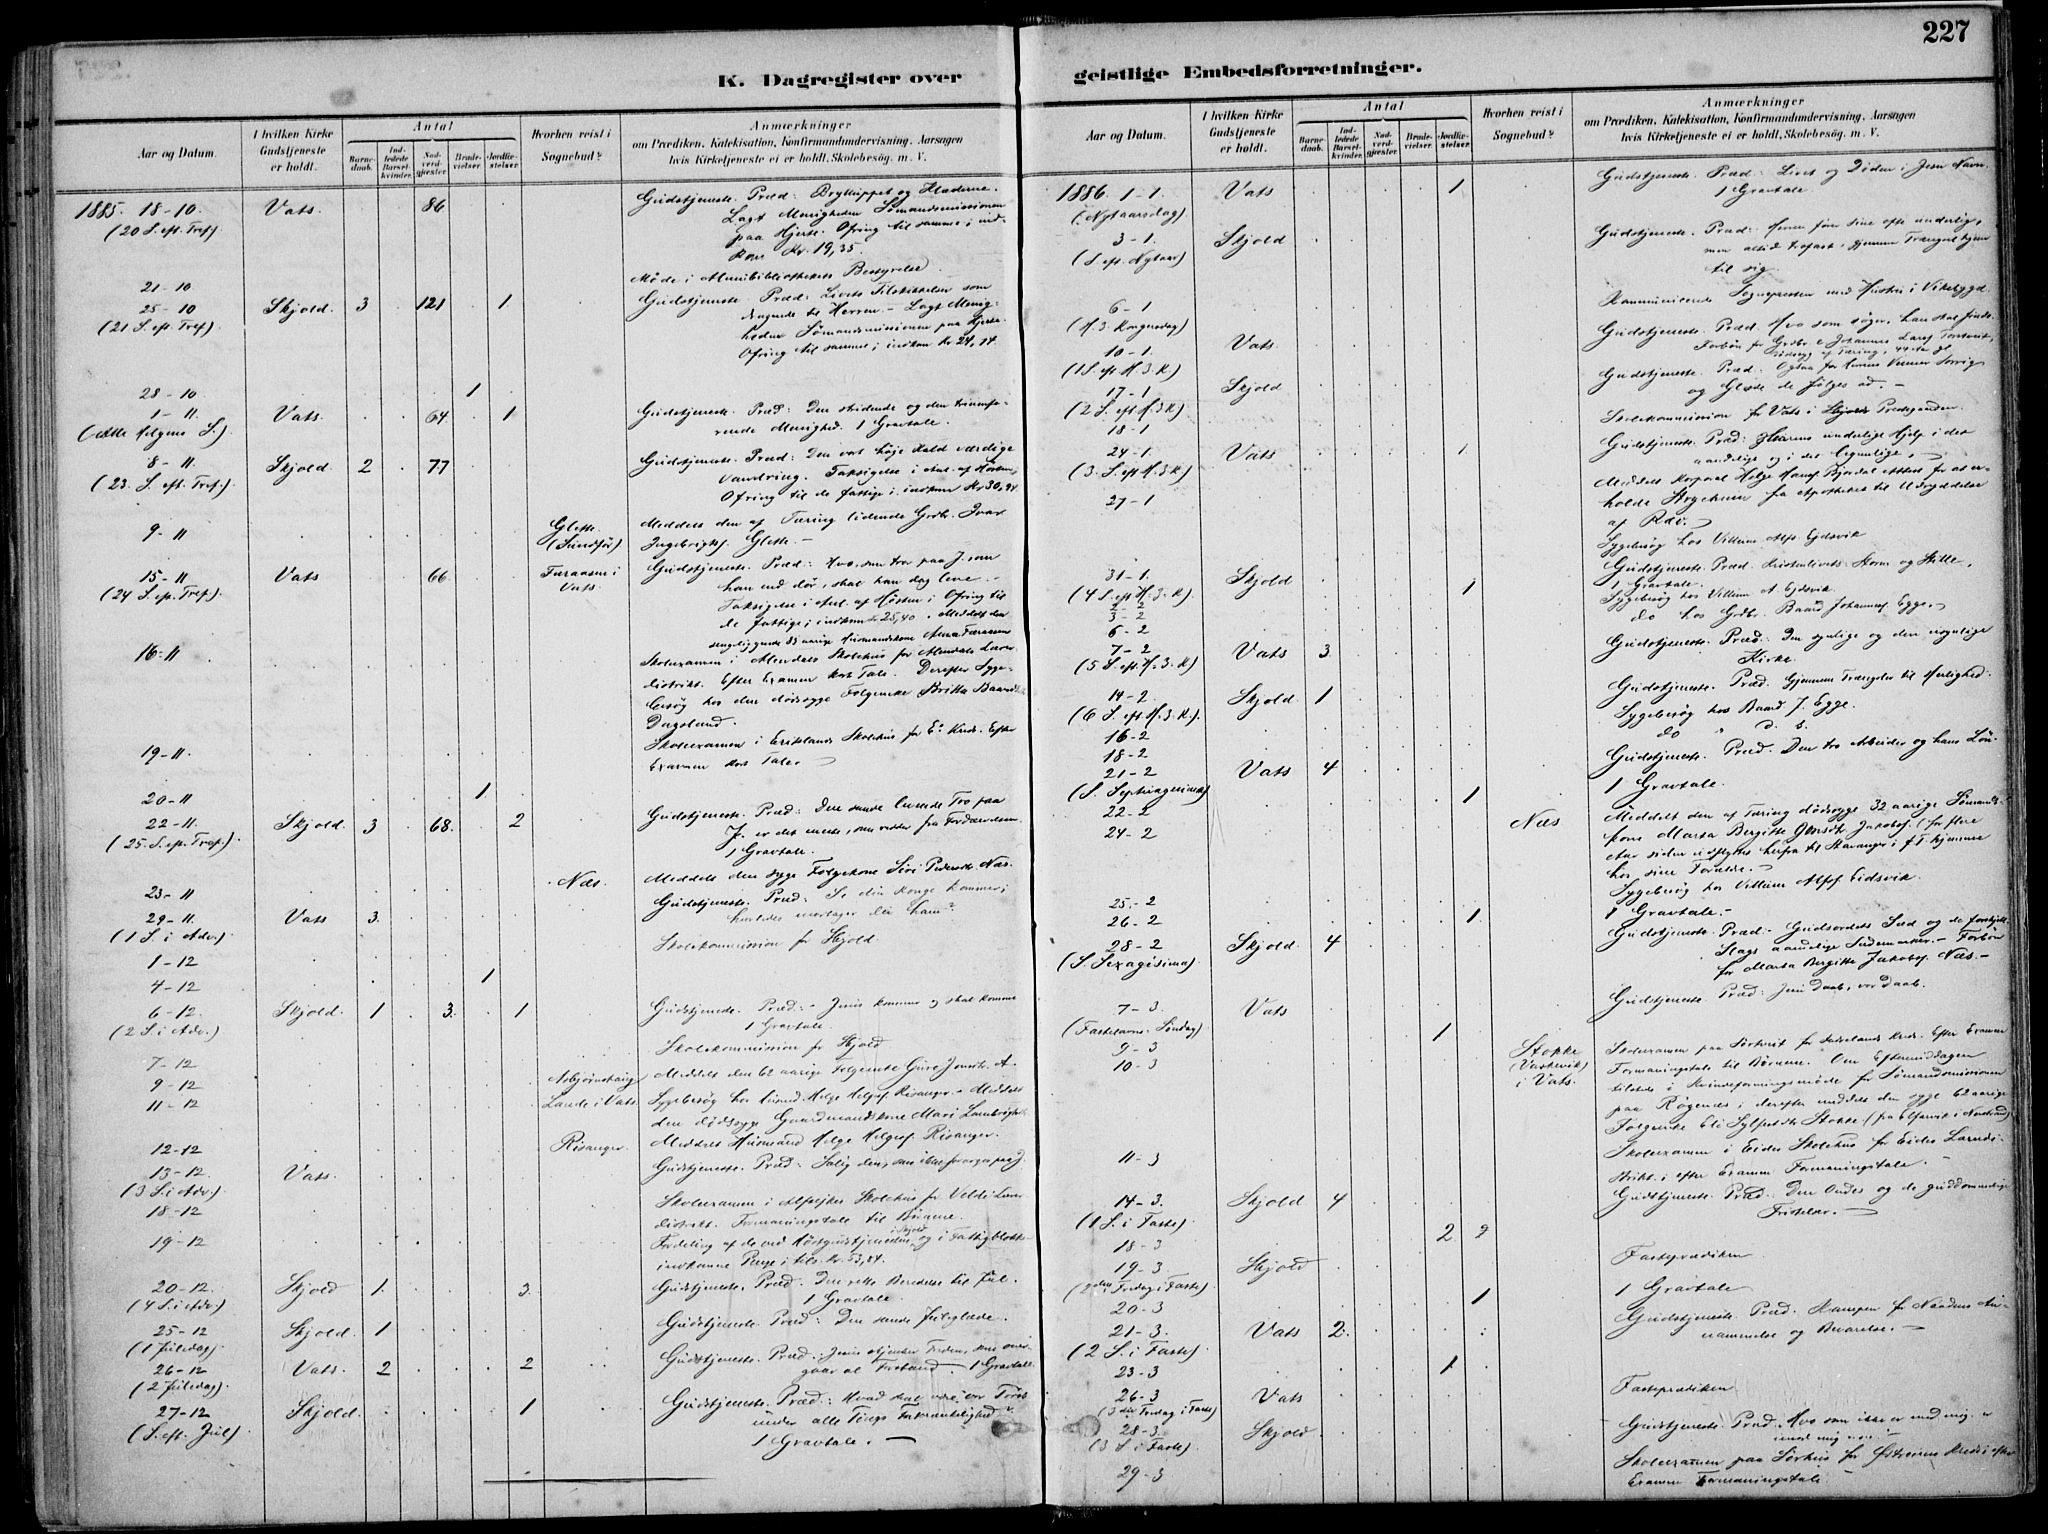 227
K. Dagregister over
geistlige Embedsforretninger.
Aar og Datum.
I hvilken Kirke Gudstjeneste er holdt.
Antal
Barnedaab.
Indledede Barselkvinder.
Nadverdgjæster.
Brudevielser.
Jordfæstelser.
Hvorhen reist i Sognebud?
Anmærkninger
om Prædiken, Katekisation, Konfirmandundervisning, Aarsagen
hvis Kirketjeneste ei er holdt, Skolebesøg. m. V.
1885. 18-10. Vats. 86 Gudstjeneste. Præd: Brylluppet og Klæderne.
(20 S. eft. Tref.) Lagt Menigheden Sømandsmissionen
paa Hjerte. Ofring til samme; ind-
kom Kr. 19,35.
21-10 Møde i Bestyrelse
25-10 Skjold. 3 121 1 Gudstjeneste. Præd: Livets Tilskikkelser som
(21 S. eft. Tref.) dragende til Herren. - Lagt Menig-
heden Sømandsmissionen paa Hjerte.
Ofring til samme; indkom Kr 24,14.
28-10 1
1-11. Vats. 64. 1 Gudstjeneste. Præd: Den stridende og den triumfe-
(Alle Helgens S.) rende Menighed. 1 Gravtale.
8-11. Skjold 2 77 Gudstjeneste. Præd: Den vort høje Kald værdige
(23. S. eft. Tref.) Vandring. Taksigelse i Anl. af Høsten,
Ofring til de fattige; indkom Kr 30,94.
9-11 Glette. Meddelt den af Tæring lidende Grdbr. Ivar
(Sundfør) Ingebrigts. Glette. -
15-11 Vats 66 Furaasen i Gudstjeneste. Præd: Hvo, som tro paa J. om
(24 S. ep. Tref.) Vats. han end dør, skal han dog leve. -
Taksigelse i Anl. af Høsten; Ofring til
de fattige; indkom Kr 25,40. Meddelt den
sengeliggende 83 aarige Husmandskone
16-11 Skoleexamen i Skolehus for
distrikt. Efter Examen kort Tale. Derefter Syge-
besøg hos den dødssyge Folgemke Britta
Dagsland.
19-11. Skoleexamen i Eriklands Skolehus for E. Kreds. Efter
Examen kort Tale. -
20-11 1
22-11. Skjold. 3 68. 2 Gudstjeneste. Præd: Den sande levende Tro paa
(25. S. ep. Tref.) J. er det eneste, som redder fra Fordærvelsen.
1 Gravtale.
23-11 Næs. Meddelt den syge Folgekone Siri Pedersdt. Næs.
29-11. Vats 3 Gudstjeneste. Præd: Se din Konge kommer;
(1 S. i Adv.) hvorledes modtager du ham?
1-12 Skolekommission for Skjold
4-12 1
6-12. Skjold. 1 3. 1 Gudstjeneste. Præd: - Jesus kommer og skal komme
(2 S. i Adv.) 1 Gravtale.
7-12 Skolekommission for Skjold
9-12 Asbjørnshaug Meddelt den 62 aarige Folgemke Guro Jonsdt. A.
11-12 Lande i Vats. Sygebesøg hos Husmd. Helge Helges. Risanger. - Meddelt
den dødssyge Gaardmandskone Mari
12-12 Risanger. Meddelt Husmand Helge Helges. Risanger.
13-12 Vats. Gudstjeneste. Præd: Salig den, som ikke forarges paa J.
(3 S. i Adv.)
18-12 Skoleexamen i Skolehus for
distrikt. Formaningstale til Børnene.
19-12 Fordeling af de ved Høstgudstjenesten Skjold og i Fattigblokke
indkomne Penge; tils. Kr. 53,84.
20-12. Skjold 1. 3. Gudstjeneste. Præd: Den rette Beredelse til Jul.
(4 S. i Adv.) 1 Gravtale.
25-12 Skjold. 1 Gudstjeneste. Præd: Den sande Juleglæde.
(1 Juledag)
26-12 Vats. 2 2 Gudstjeneste. Præd: Jesus skjenker Freden, som over-
(2 Juledag). gaar al Forstand. - 1 Gravtale.
27-12 Skjold. 1 Gudstjeneste. Præd: Hvad skal være vor Trøst
(S. eft. Jul) under alle Tings Forkrænkelighed?
1 Gravtale. -
Aar og Datum.
I hvilken Kirke Gudstjeneste er holdt.
Antal
Barnedaab.
Indledede Barselkvinder.
Nadverdgjæster.
Brudevielser.
Jordfæstelser.
Hvorhen reist i Sognebud?
Anmærkninger
om Prædiken, Katekisation, Konfirmandundervisning, Aarsagen
hvis Kirketjeneste ei er holdt, Skolebesøg. m. V.
1886. 1-1. Vats 1 Gudstjeneste. Præd: Livet og Døden i Jesu Navn.
(Nytaarsdag) 1 Gravtale.
3-1. Skjold Gudstjeneste. Præd: Herren fører sine ofte underlig,
(S. eft. Nytaar) men altid trofast, gjennem Trængsel hjem
til sig.
6-1 Kommunicerede Sognepresten med Hustru i Vikebygd.
(H. 3. Kongersdag)
10-1. Vats Gudstjeneste. Præd. Hvo som søger, han skal finde.
(1 S. eft H. 3. K) Forbøn for Grdbr. Johannes
17-1 Skjold Gudstjeneste. Præd: Ogsaa for Herrens Venner Sorrig
(2 S. eft H. 3. K) og Glæde de følges ad. -
18-1 Skolekommission for Vats i Præstegaarden.
24-1. Vats 1 Gudstjeneste. Præd: Herrens underlige Hjelp i det
(3. S. eft H. 3. K) aandelige og i det legemlige. -
27-1 Meddelt Korporal Helge Attest for at er-
holde fra Apotheket til Udryddelse
af Ræv. -
Sygebesøg hos Villum Alfs. Eidsvik
31-1. Skjold 1 Gudstjeneste. Præd. Kristenlivets Storm og Stille.
(4 S. eft H. 3. K.) 1 Gravtale.
2-2
3-2 Sygebesøg hos Villum A. Eidsvik
6-2 do hos Grdbr. Baard Johannes. Egge. -
7-2 Vats 3. Gudstjeneste. Præd: Den synlige og den usynlige
(5 S. eft. H. 3. K) Kirke.
14-2 Skjold 1 Gudstjeneste. Præd. Gjennem Trængsler til Herlighed.
(6 S. eft H. 3. K.)
16-2 Sygebesøg hos Baard J. Egge.
18-2 do " d. s.
21-2 Vats 4 Gudstjeneste. Præd. Den tro Arbeider og hans Løn.
(S. Septuagesima)
22-2 1 1 Gravtale.
24-2 Næs Meddelt den af Tæring dødssyge 32 aarige Sømands-
kone Marta Bergitte Jakobs. (for flere
Aar siden udflyttet herfra til Stavanger; p. T. hjemme
hos sine Forældre. -
25-2 Sygebesøg hos Villum Alfs. Eidsvik.
26-2 1 1 Gravtale. -
28-2 Skjold. 4 Gudstjeneste. Præd. - Gudsordets Sæd og de forskjell.
(S. Sexagesima) Slags aandelige Sædemarker. - Forbøn
for Marta Bergitte Jakobs. Næs. -
7-3 Vats Gudstjeneste. Præd: Jesu Daab, vor Daab.
(Fastelavns Søndag)
9-3 1
10-3 Stokke Skoleexamen paa for Kreds. Efter Examen
(Vastevik) Formaningstale til Børnene. Om Eftermiddagen
i Vats. tilstede i Kvindeforeningsmøde for Sømandsmissionen
paa derefter meddelt den syge 62 aarige
Folgemke Eli Stokke
11-3 Skoleexamen i Eides Skolehus for Eides Læredi-
strikt; efter Examen Formaningstale. -
14-3. Skjold 4 Gudstjeneste. Præd: Den Ondes og de guddommelige
(1 S. i Faste) Fristelser. -
18-3 2 2
19-3 Skjold Fasteprædiken
(2den Fredag i Faste)
20-3 1 1 Gravtale
21-3. Vats 2. Gudstjeneste. Præd. Kampen for Naadens An-
(2 S. i Faste) nammelse og Bevarelse. -
23-3 1
26-3 Vats Fasteprædiken
(3die Fredag i Faste)
28-3. Skjold. Gudstjeneste. Præd. Hvo som ikke er med mig, er
(3 S. i Faste) imod mig
29-3 Skoleexamen paa Sørhus for Kreds; efter
Examen Formaningstale.